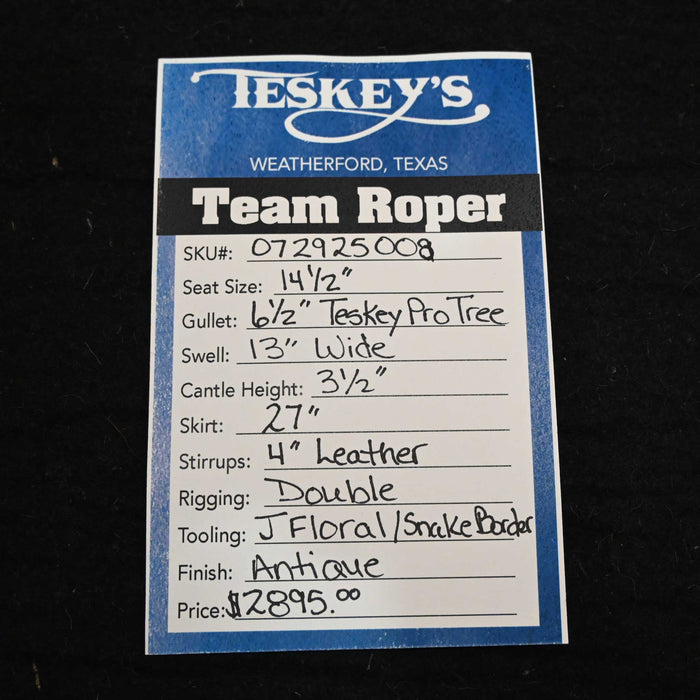 TESKEY'S
WEATHERFORD, TEXAS
Team Roper
SKU#: 072925008
Seat Size: 14 1/2"
Gullet: 6 1/2" Teskey Pro Tree
Swell: 13" Wide
Cantle Height: 3 1/2"
Skirt: 27"
Stirrups: 4" Leather
Rigging: Double
Tooling: J Floral/Snake Border
Finish: Antique
Price: $2895.00